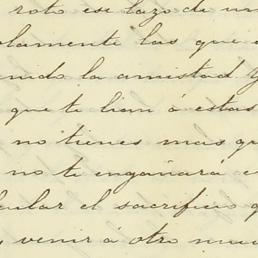 roto ese lazo de un
olamente las que
nido la amistad y
que te lian á estas
no tienes mas qu
no te engañará e
cular el sacrificio q
venir á otro mu